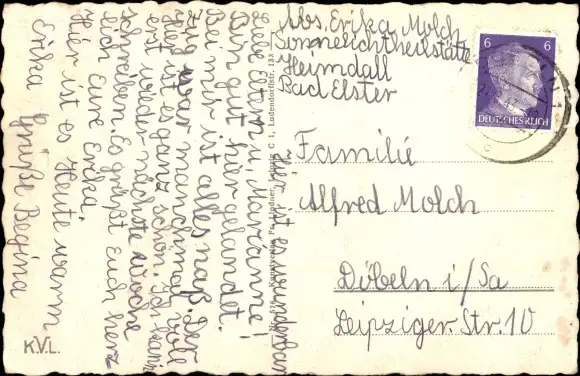 Abs. Erika Molch
Sonnelichtheilstätte
Heimdall
Bad Elster
6 6
DEUTSCHES REICH
Familie
Alfred Molch
Döbeln i/Sa
Leipziger-Str. 10
Liebe Eltern u. Marianne!
Bin gut hier gelandet.
Bei mir ist alles naß. Der
Zug war manchmal voll
hier ist es ganz schön. Ich kann
erst wieder nächste Woche
schreiben. Es grüßt Euch herz
lich Eure Erika.
Hier ist es Heute warm
Erika Grüße Regina
ist es wunderbar
Lindner, Leipzig C 1, Ludendorffstr.
K.V.L.